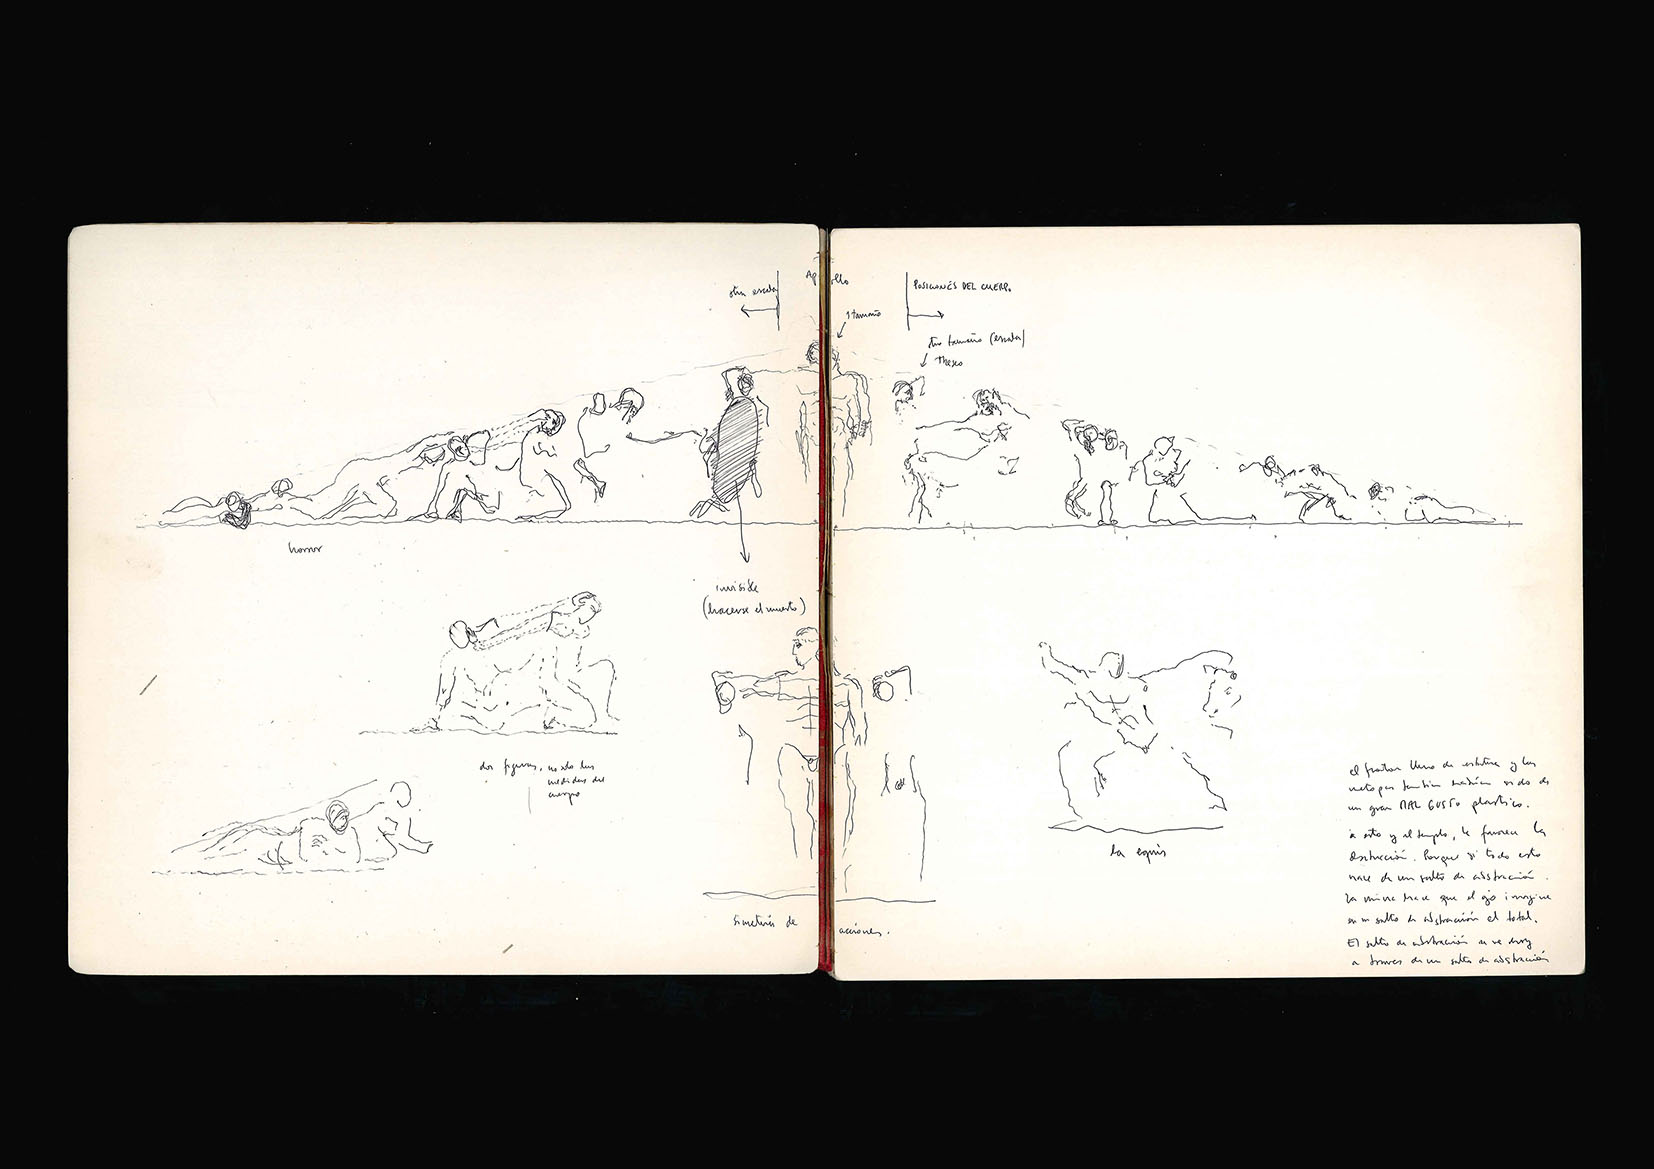 otra escala
Apollo
1 tamaño
POSICIONES DEL CUERPO
otro tamaño (escala)
Theseo
horror
invisible
(hacerse el muerto)
dos figuras, no solo las
medidas del
cuerpo
la equis
Simetrías de acciones.
el frontón lleno de estatuas y las
metopas también habrían sido de
un gran MAL GUSTO plástico.
a esto y al templo, le favorece la
destrucción. Porque si todo esto
nace de un salto de abstracción.
la ruina hace que el ojo imagine
en un salto de abstracción el total.
El salto de abstracción se ve hoy
a través de un salto de abstracción